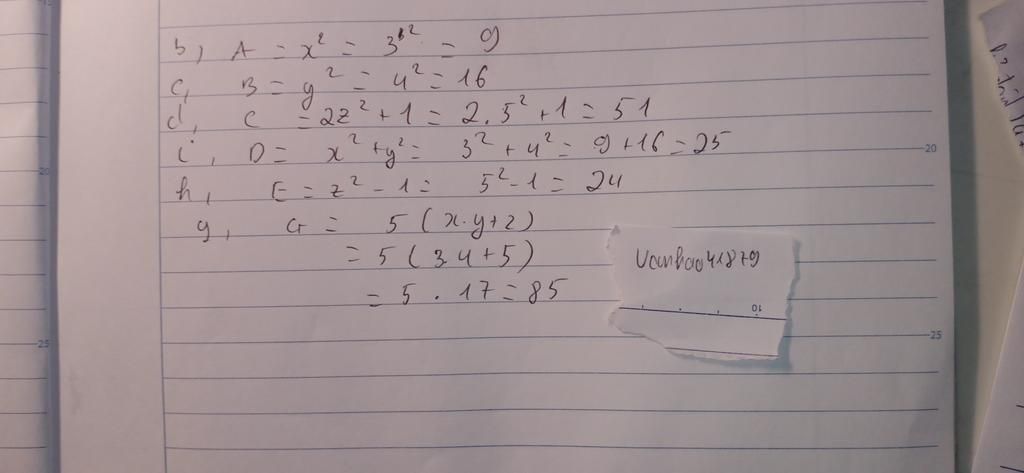 b, A = x² = 3² = 9
c, B = y² = 4² = 16
d, C = 2z² + 1 = 2.5² + 1 = 51
i, D = x² + y² = 3² + 4² = 9 + 16 = 25
h, E = z² - 1 = 5² - 1 = 24
g, G = 5 (x.y+z)
= 5 (3.4+5)
= 5 . 17 = 85
Vanhao41879
20
20
25
25
10